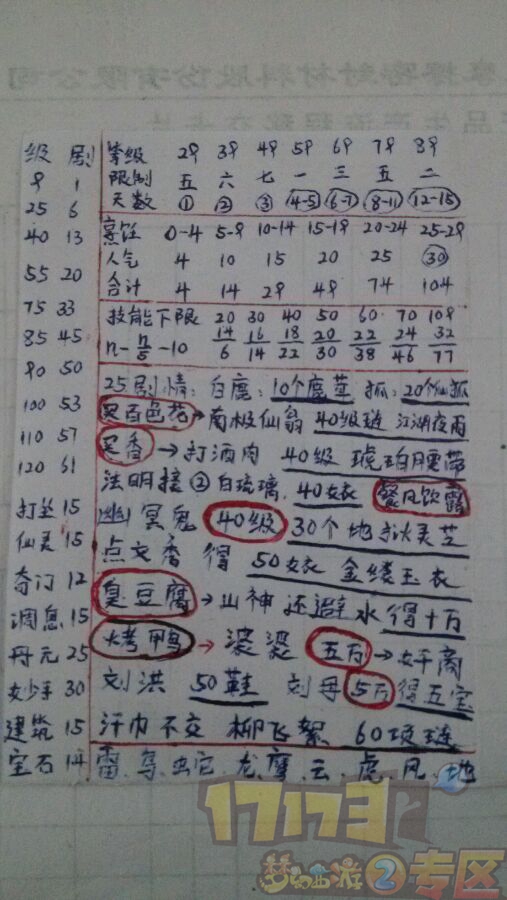 级 剧
9 1
25 6
40 13
55 20
75 33
85 45
90 50
100 53
110 57
120 61
打坐 15
仙灵 15
奇门 12
调息 15
丹元 25
妙手 30
建筑 15
宝石 14
等级 29 39 49 59 69 79 89
限制 五 六 七 一 三 五 二
天数 ① ② ③ 4-5 6-7 8-11 12-15
烹饪 0-4 5-9 10-14 15-19 20-24 25-29
人气 4 10 15 20 25 30
合计 4 14 29 49 74 104
技能下限 20 30 40 50 60 70 109
14 16 18 20 22 24 32
n-n/5-10 6 14 22 30 38 46 77
25剧情:白鹿:10个鹿茸 狐:20个仙狐
买百色花→南极仙翁 40级链 江湖夜雨
买香→打酒肉 40级 琥珀腰带
法明接②白琉璃.40女衣 餐风饮露
幽冥鬼 40级 30个地狱灵芝
点文香 得 50女衣 金缕玉衣
臭豆腐→山神 还避水 得十万
烤鸭→婆婆 五万→奸商
刘洪 50鞋 刘母 5万 得五宝
汗巾不交 柳飞絮 60项链
雷、鸟、虫它、龙、鹰、云、虎、风、地
17173
梦幻西游2专区